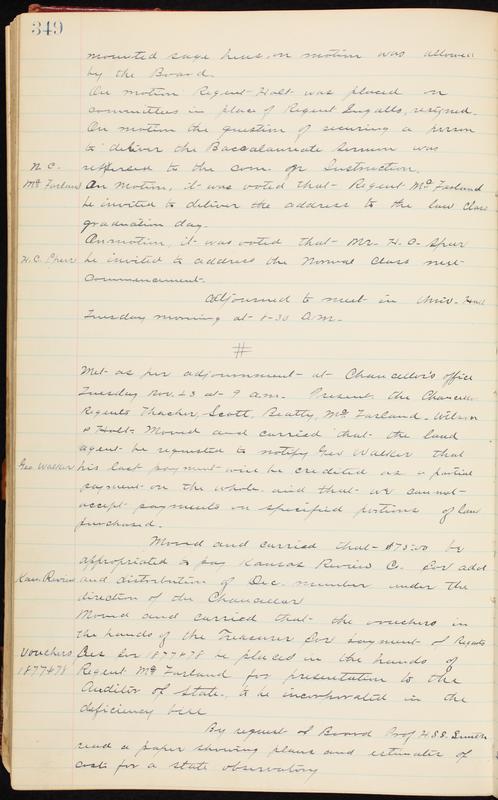 349
mounted sage hens, on motion was allowed
by the Board.
On motion Regent Holt was placed on
committees in place of Regent Ingalls, resigned.
On motion the question of securing a person
to deliver the Baccalaureate sermon was
N.C. referred to the com. on Instruction.
McFarland On motion, it was voted that Regent McFarland
be invited to deliver the address to the law class
graduation day.
On motion, it was voted that Mr. H.C. Speer
H.C. Speer be invited to address the Normal Class next
Commencement.
Adjourned to meet in Univ. Hall
Tuesday morning at 8-30 A.M.
#
Met as per adjournment at Chancellor's office
Tuesday Nov. 23 at 9 a.m. Present, the Chancellor
Regents Thacher, Scott, Beatty, McFarland, Wilson
& Holt. Moved and carried that the land
agent be requested to notify Geo Walker that
Geo. Walker his last payment will be credited as a partial
payment on the whole and that we cannot
accept payments on specified portions of land
purchased.
Moved and carried that $75.00 be
appropriated to pay Kansas Review C. for addl
Kan. Review and distribution of Dec. number under the
direction of the Chancellor
Moved and carried that the vouchers in
the hands of the Treasurer for payment of Regents
Vouchers for 1877&78 be placed in the hands of
1877&78 Regent McFarland for presentation to the
Auditor of State, to be incorporated in the
deficiency bill
By request of Board Prof H.S.S. Smith
read a paper showing plans and estimates of
cost for a state observatory